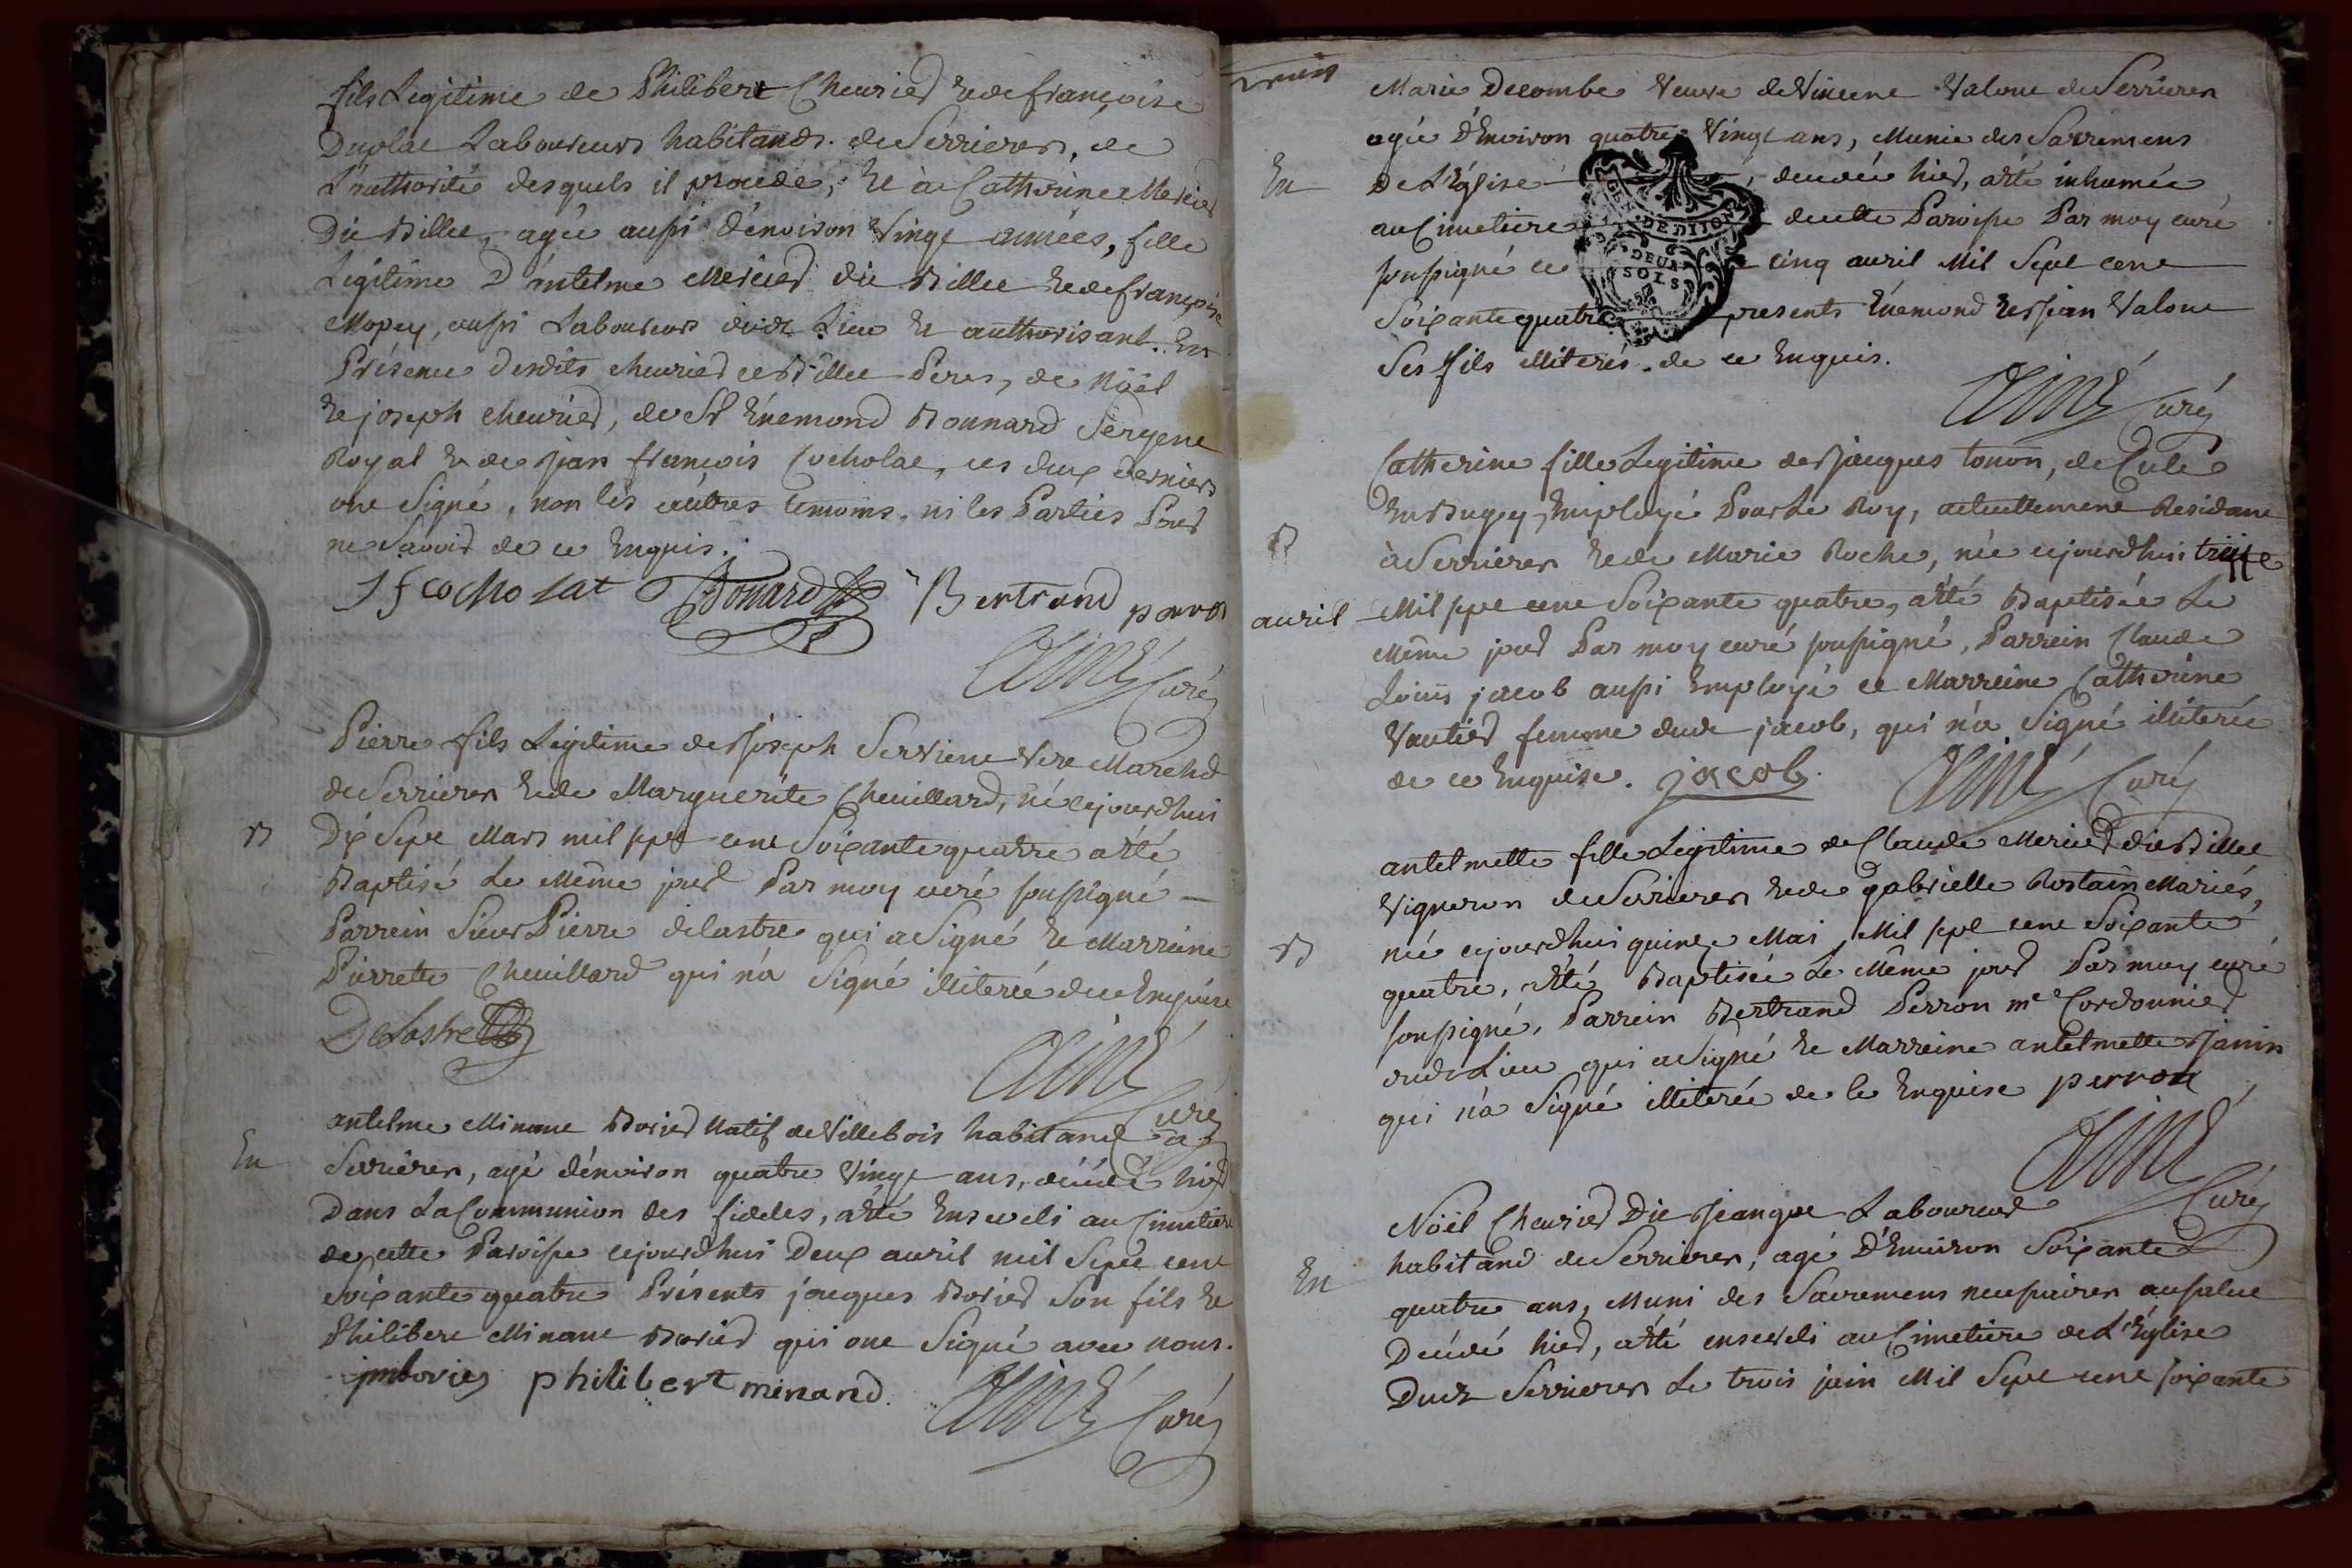 fils Legitime de Philibert Cheurier et de françoise
Duplat Laboureurs habitands de Serrieres, de
L'authorité desquels il procede; et à Catherine Mercier
Dit Billet, agée aussi d'environ Vingt années, fille
Legitime D'antelme Mercier dit Billet et de françoise
Mopey, aussi Laboureurs dudt Lieu et authorisant. En
Présence desdits cheurier et Billet Peres, de Nöel
et joseph cheurier, de Sr Enemond Bonnard Sergent
Royal et de Jean françois Cocholat, ces deux derniers
ont Signé, non les autres temoins, ni les Parties Pour
ne Savoir de ce Enquis.
Jf cocholat Bonard Bertrand perron
Aimé Curé
Pierre fils Legitime de Joseph Servient Marchd
de Serrieres et de Marguerite Cheuillard, né cejourdhui
B Dix Sept Mars mil sept cent Soixante quatre a été
Baptisé Le Même jour Par moy curé soussigné
Parrein Sieur Pierre delastre qui a Signé et Marreine
Pierrette Cheuillard qui n'a Signé illiterée de ce Enquise
DeLastre
Aimé Curé
antelme Minant Borier Natif de Villebois habitand à
En Serrieres, agé d'environ quatre Vingt ans, décédé hier
Dans La Communion des fideles, a été Enseveli au Cimetiere
de cette Paroisse cejourdhui Deux avril mil Sept cent
Soixante quatre Présents jacques Borier Son fils et
Philibert Minant Borier qui ont Signé avec nous.
jmborier philibert minand
Aimé Curé
Marie Decombe Veuve de Vincent Valont de Serrieres
agée d'Environ quatre Vingt ans, Munie des Sacremens
En De L'Eglise, decedée hier, a été inhumée
au Cimetiere de cette Paroisse Par moy curé
soussigné ce cinq avril Mil Sept cent
Soixante quatre presents Enemond et Jean Valont
Ses fils illiterés de ce Enquis.
GEN. DE DIJON
DEUX
SOLS
Aimé Curé
Catherine fille Legitime de Jacques tonon, de Cule
En Bugey, Employé Pour Le Roy, actuellement Residant
B à Serrieres et de Marie Roche, née cejourdhui treize
avril Mil sept cent Soixante quatre, a été Baptisée Le
Même jour Par moy curé soussigné, Parrein Claude
Loüis jacob aussi Employé et Marreine Catherine
Vautier femme dudt jacob, qui n'a Signé illiterée
de ce Enquise. jacob.
Aimé Curé
antelmette fille Legitime de Claude Mercier dit Billet
Vigneron de Serrieres et de gabrielle Rostain Mariés,
B née cejourdhui quinze Mai Mil sept cent Soixante
quatre, a été Baptisée Le Même jour Par moy curé
soussigné, Parrein Bertrand Perron me Cordonnier
dudt Lieu qui a Signé et Marreine antelmette Janin
qui n'a Signé illiterée de ce Enquise perron
Aimé Curé
Nöel Cheurier Dit Laboureur
habitand de Serrieres, agé d'Environ Soixante
En quatre ans, Muni des Sacremens necessaires au salut
Décédé hier, a été enseveli au Cimetiere de L'Eglise
Dudt Serrieres Le trois juin Mil Sept cent soixante